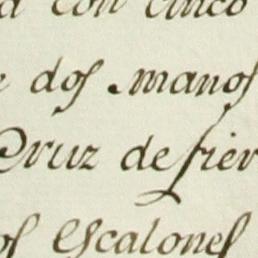 con cinco
dos manos
Cruz de fier
Escalones